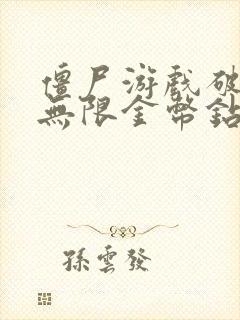 僵尸游戏破
無限金幣鉆
孫雲發